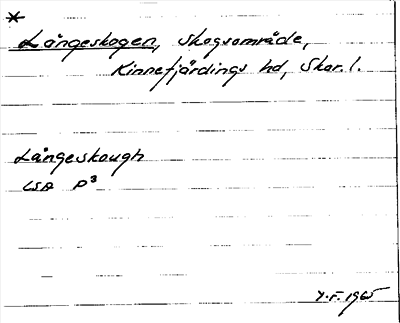 *
Långeskogen, Skogsområde,
Kinnefjärdings hd, Skar. l.
Långeskough
LSA P³
Y.F. 1965